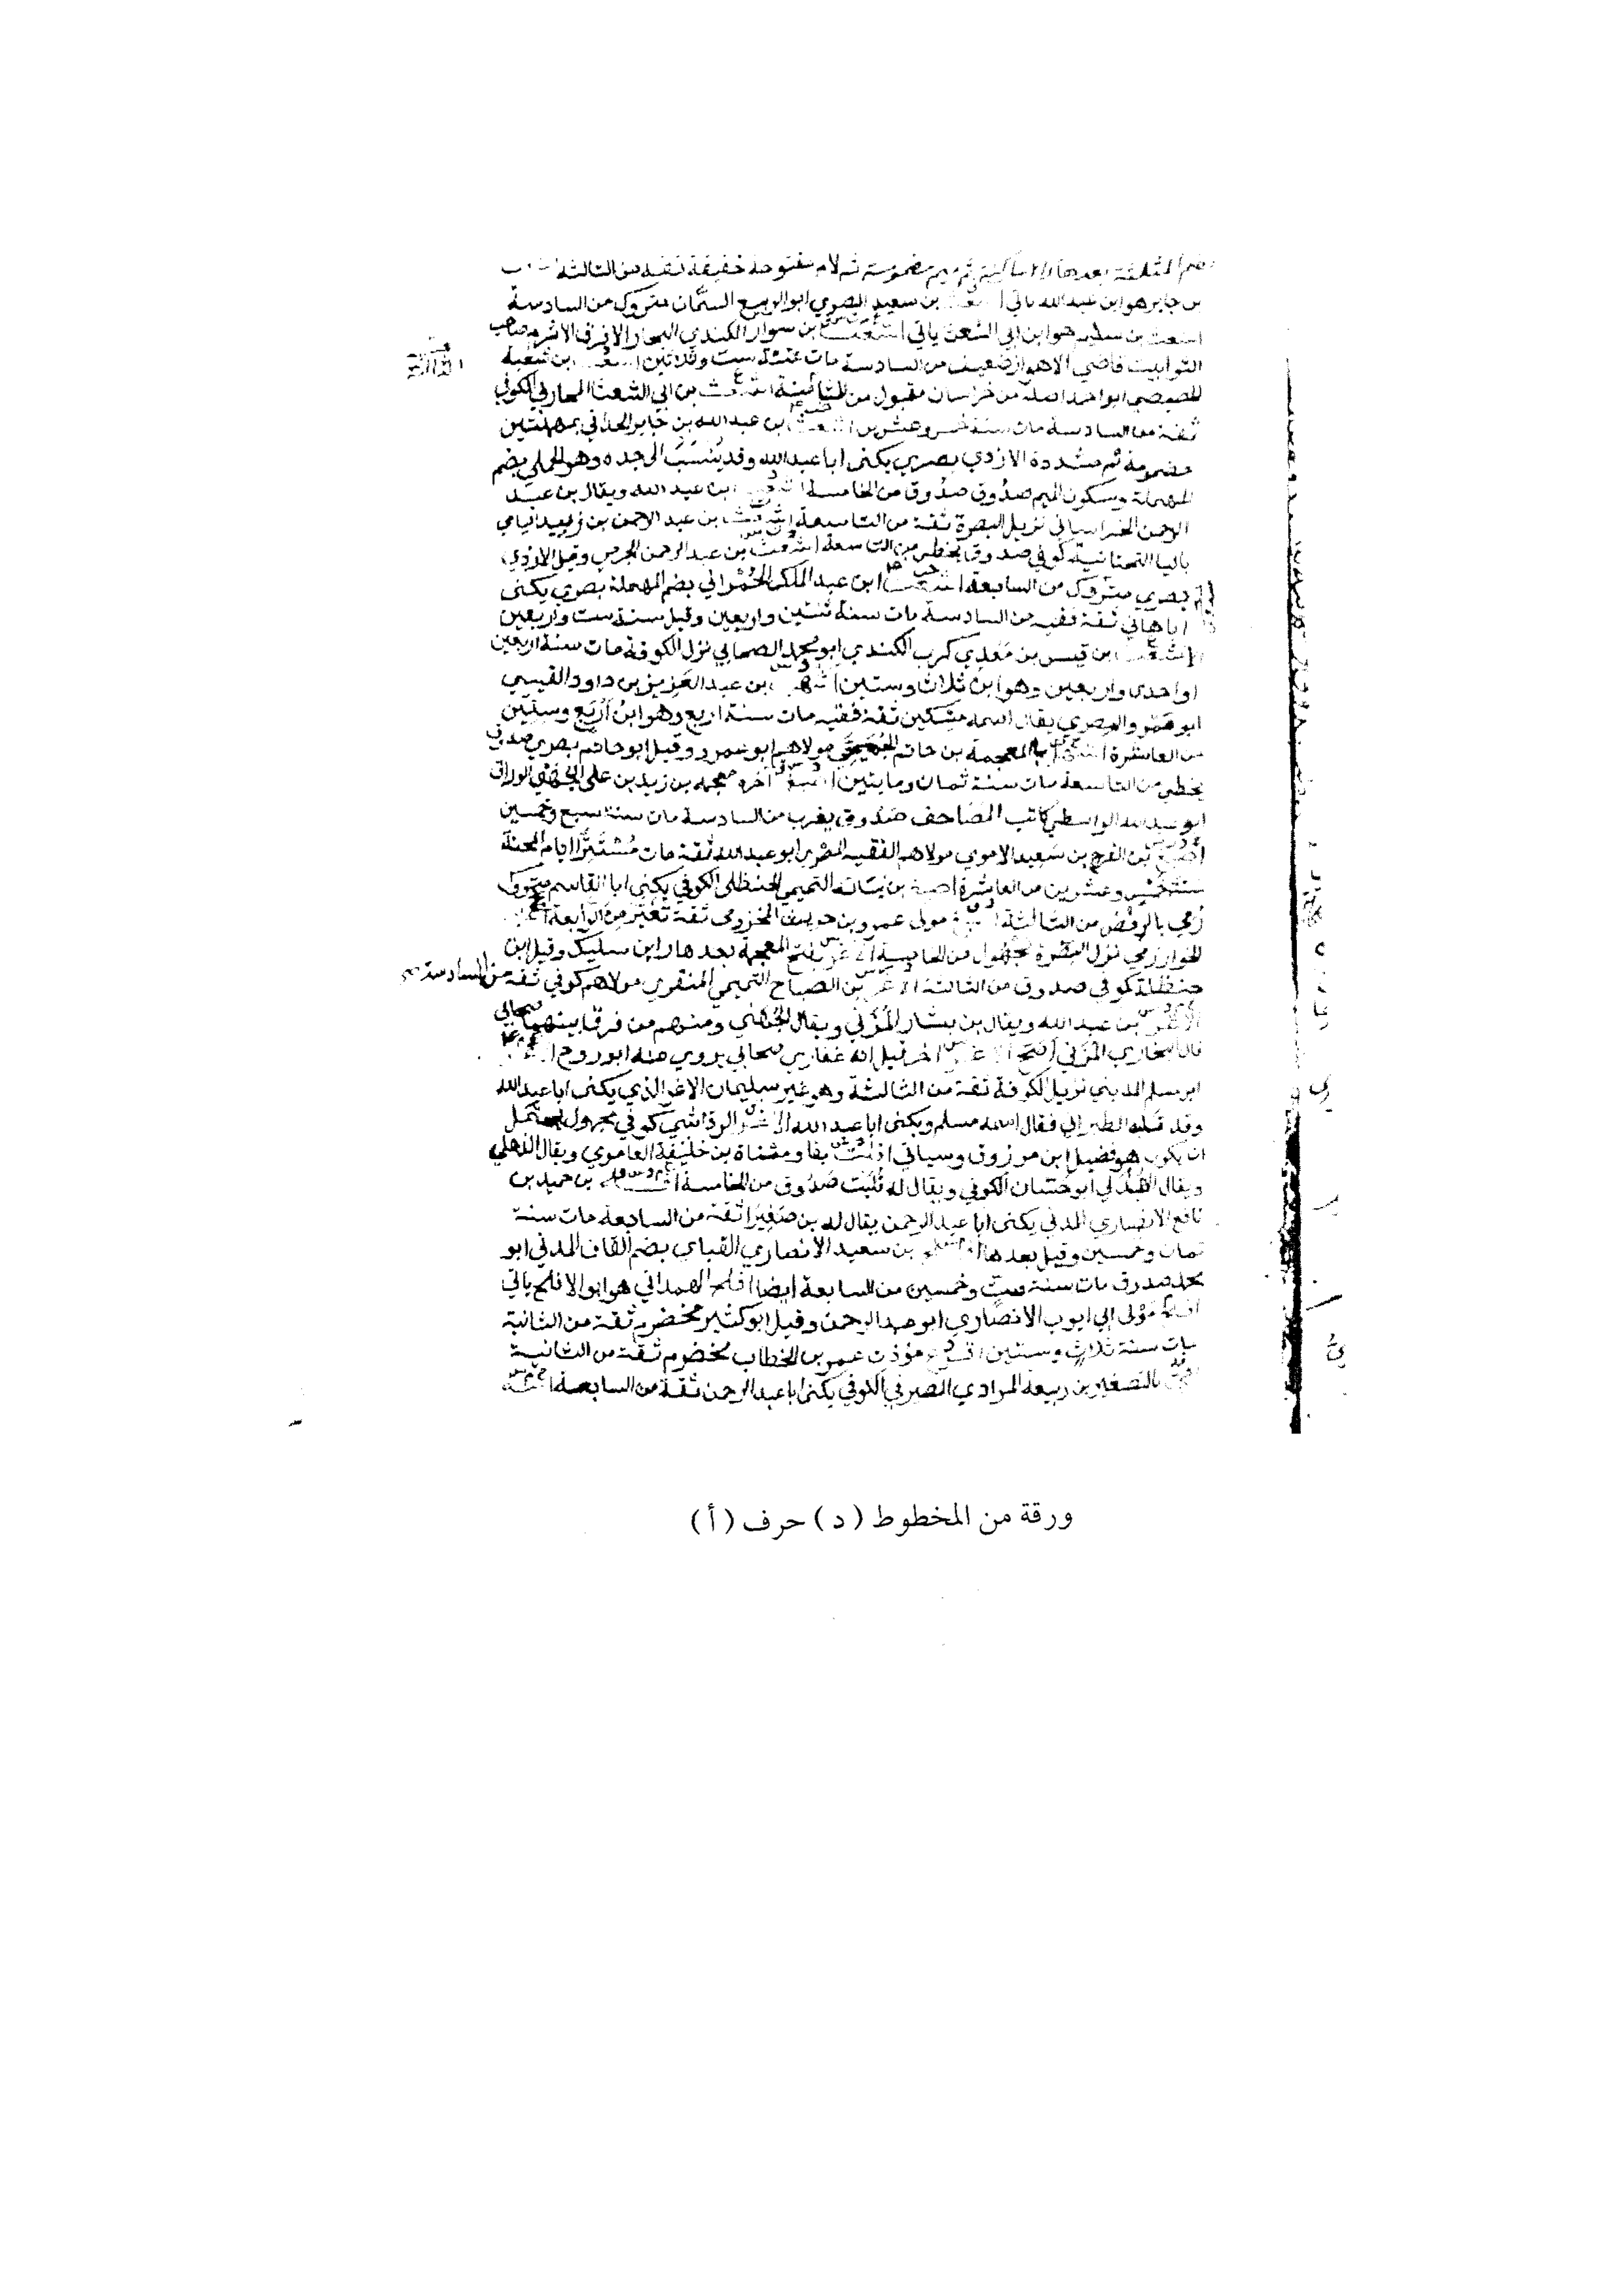 المثلثة بعدها ثم ميم مضمومة ثم لام مفتوحة خفيفة ثقة من الثالثة
بن جابر هو ابن عبد الله ياتي بن سعيد البصري ابو الربيع السمان متروك من السادسة
اشعث بن سليم هو ابن ابي الشعثا ياتي اشعث بن سوار الكندي النجار الافرق الاثرم صاحب
التوابيت قاضي الاهواز ضعيف من السادسة مات سنة ست وثلاثين ابن شعبة
المصيصي ابو احمد اصله من خراسان مقبول من الثامنة اشعث بن ابي الشعثا المحاربي الكوفي
ثقة من السادسة مات سنة خمس وعشرين بن عبد الله بن جابر الحداني بمهملتين
مضمومة ثم مشددة الازدي بصري يكنى ابا عبد الله وقد ينسب الى جده وهو الحملي بضم
المهملة وسكون الميم صدوق صدوق من الخامسة ابن عبد الله ويقال بن عبد
الرحمن الخراساني نزيل البصرة ثقة من التاسعة اشعث بن عبد الرحمن بن زبيد اليامي
باليا التحتانية كوفي صدوق يخطي من التاسعة اشعث بن عبد الرحمن الجرمي وقيل الازدي
بصري متروك من السابعة اشعث ابن عبد الملك الحمراني بضم المهملة بصري يكنى
ابا هاني ثقة فقيه من السادسة مات سنة ثنتين واربعين وقيل سنة ست واربعين
بن قيس بن معدي كرب الكندي ابو محمد الصحابي نزل الكوفة مات سنة اربعين
او احدى واربعين وهو ابن ثلاث وستين اشهب بن عبد العزيز بن داود القيسي
ابو عمرو المصري يقال اسمه مسكين ثقة فقيه مات سنة اربع وهو ابن اربع وستين
من العاشرة بالمعجمة بن حاتم الجمحي مولاهم ابو عمرو وقيل ابو حاتم بصري صدوق
يخطي من التاسعة مات سنة ثمان ومايتين اصبغ اخره معجمه بن زيد بن علي الجهني الوراق
ابو عبد الله الواسطي كاتب المصاحف صدوق يغرب من السادسة مات سنة سبع وخمسين
اصبغ بن الفرج بن سعيد الاموي مولاهم الفقيه المصري ابو عبد الله ثقة مات مستترا ايام المحنة
سنة خمس وعشرين من العاشرة اصبغ بن نباتة التميمي الحنظلي الكوفي يكنى ابا القاسم متروك
رمي بالرفض من الثالثة اصبغ مولى عمرو بن حريث المخزومي ثقة تغير من الرابعة
الخوارزمي نزل البصرة مجهول من الخامسة الاغر بفتح المعجمة بعدها را ابن سليك وقيل ابن
حنظلة كوفي صدوق من الثالثة الاغر بن الصباح التميمي المنقري مولاهم كوفي ثقة من السادسة
الاغر بن عبد الله ويقال بن يسار المزني ويقال الجهني ومنهم من فرق بينهما صحابي
قال البخاري المزني اصح الاغر اخر قيل انه غفاري صحابي يروي عنه ابو روح
ابو مسلم المديني نزيل الكوفة ثقة من الثالثة وهو غير سليمان الاغر الذي يكنى ابا عبد الله
وقد قلبه الطبراني فقال اسمه مسلم ويكنى ابا عبد الله الاغر الرقاشي كوفي مجهول يحتمل
ان يكون هو فضيل ابن مرزوق وسياتي افلت بفا ومثناة بن خليفة العامري ويقال الذهلي
ويقال الهذلي ابو حسان الكوفي ويقال له فليت صدوق من الخامسة افلح بن حميد بن
نافع الانصاري المدني يكنى ابا عبد الرحمن يقال له بن صفيرا ثقة من السابعة مات سنة
ثمان وخمسين وقيل بعدها افلح بن سعيد الانصاري القباي بضم القاف المدني ابو
محمد صدوق مات سنة ست وخمسين من السابعة ايضا افلح الهمداني هو ابو الافلح ياتي
افلح مولى ابي ايوب الانصاري ابو عبد الرحمن وقيل ابو كثير مخضرم ثقة من الثانية
مات سنة ثلاث وستين مؤذن عمر بن الخطاب مخضرم ثقة من الثانية
بالتصغير بن ربيعة المرادي الصيرفي الكوفي يكنى ابا عبد الرحمن ثقة من السابعة
ورقة من المخطوط (د) حرف (أ)